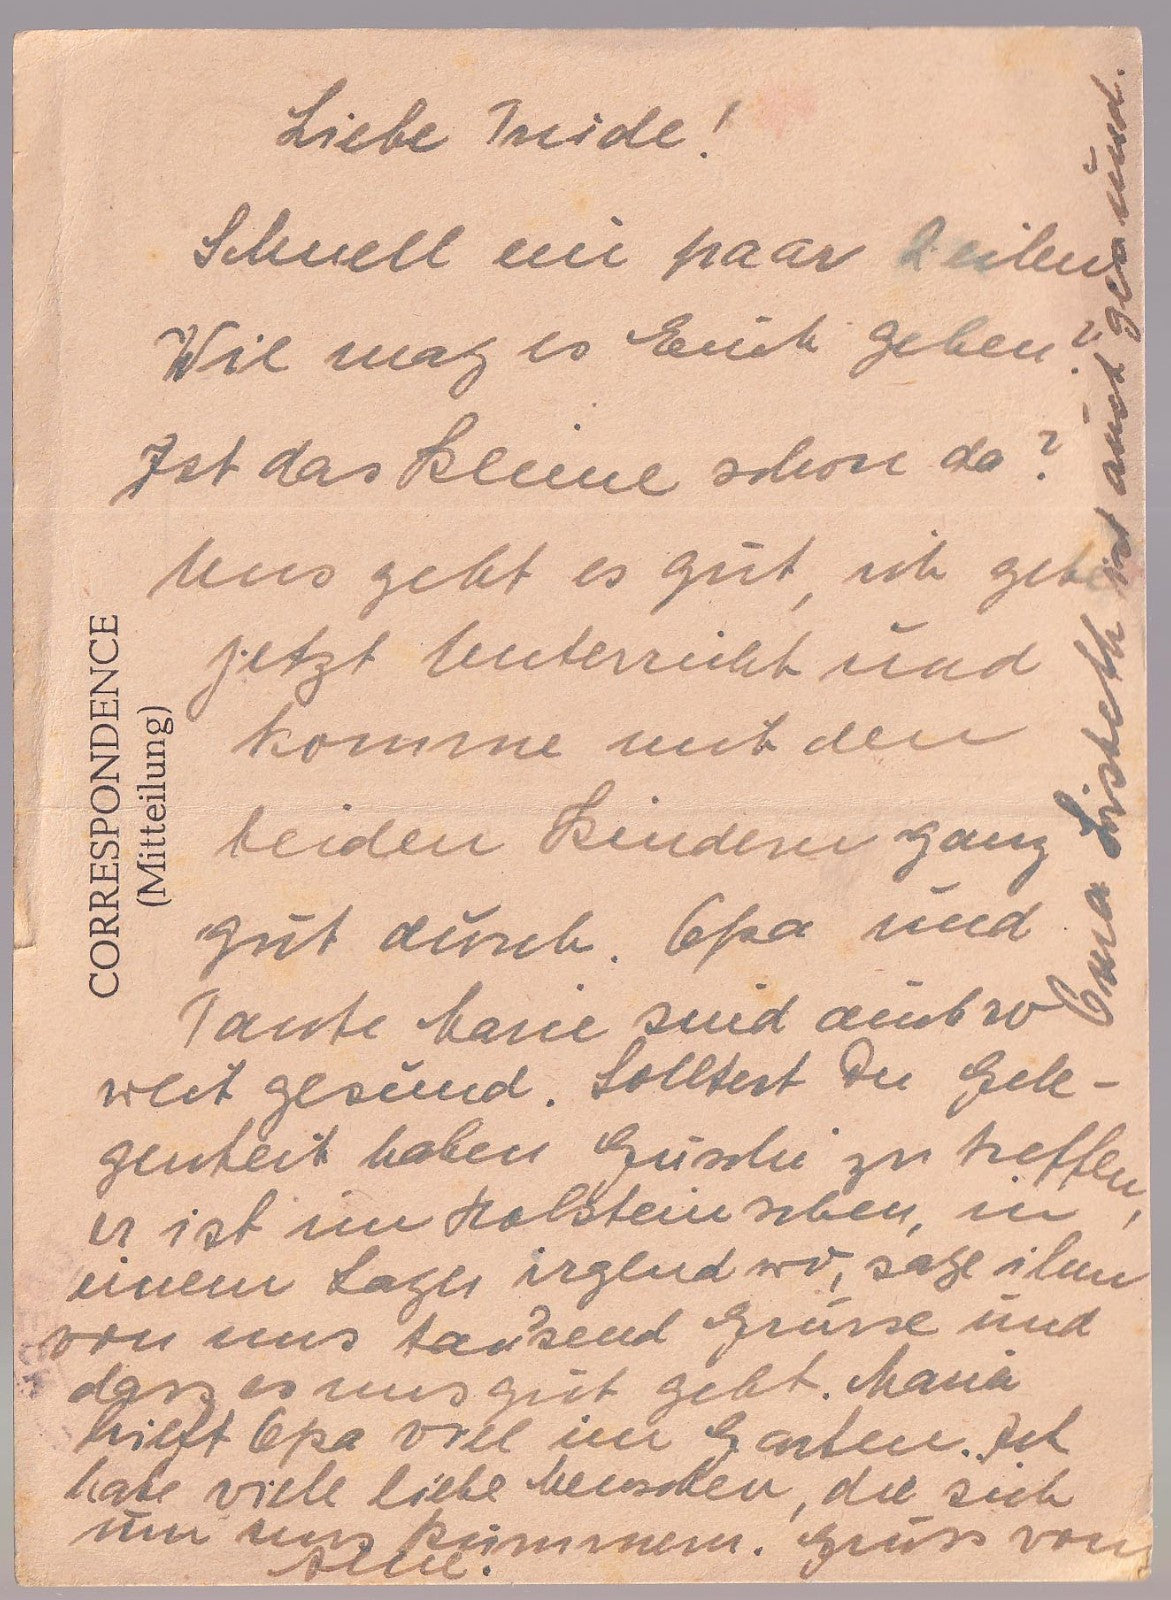 Liebe Trude!
Schnell ein paar Zeilen
Wie mag es Euch gehen?
Ist das Kleine schon da?
Uns geht es gut, ich gebe
jetzt Unterricht und
komme mit den
beiden Kindern ganz
gut durch. Opa und
Tante Marie sind auch so
weit gesund. Solltest Du Gele-
genheit haben Guschi zu treffen,
er ist im Holsteinschen, in
einem Lager irgendwo, sage ihm
von uns tausend Grüsse und
dass es uns gut geht. Maria
hilft Opa viel im Garten. Ich
habe viele liebe Menschen, die sich
um uns kümmern. Gruss von
Oma Lisbeth ist auch gesund.
CORRESPONDENCE
(Mitteilung)